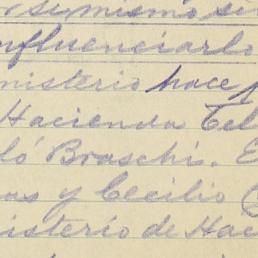 si mismo si
influenciarlo
nisterio hace
Hacienda Tel
ló Braschi. E
as y Cecilio (
isterio de Hac